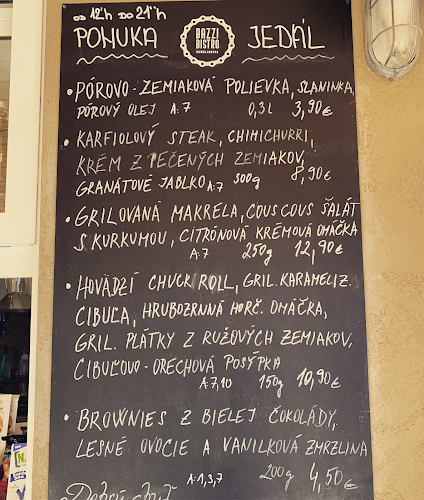 OD 12ºº h DO 21ºº h
PONUKA BAZZI BISTRO JEDÁL
• PÓROVO-ZEMIAKOVÁ POLIEVKA, SLANINKA,
PÓROVÝ OLEJ A:7 0,3l 3,90€
• KARFIOLOVÝ STEAK, CHIMICHURRI,
KRÉM Z PEČENÝCH ZEMIAKOV,
GRANÁTOVÉ JABLKO A:7 300g 8,90€
• GRILOVANÁ MAKRELA, COUSCOUS ŠALÁT
S KURKUMOU, CITRÓNOVÁ KRÉMOVÁ OMÁČKA
A:7 250g 12,90€
• HOVÄDZÍ CHUCK ROLL, GRIL. KARAMELIZ.
CIBUĽA, HRUBOZRNNÁ HORČ. OMÁČKA,
GRIL. PLÁTKY Z RUŽOVÝCH ZEMIAKOV,
CIBUĽOVO-ORECHOVÁ POSÝPKA
A:7,10 150g 10,90€
• BROWNIES Z BIELEJ ČOKOLÁDY,
LESNÉ OVOCIE A VANILKOVÁ ZMRZLINA
A:1,3,7 200g 4,50€